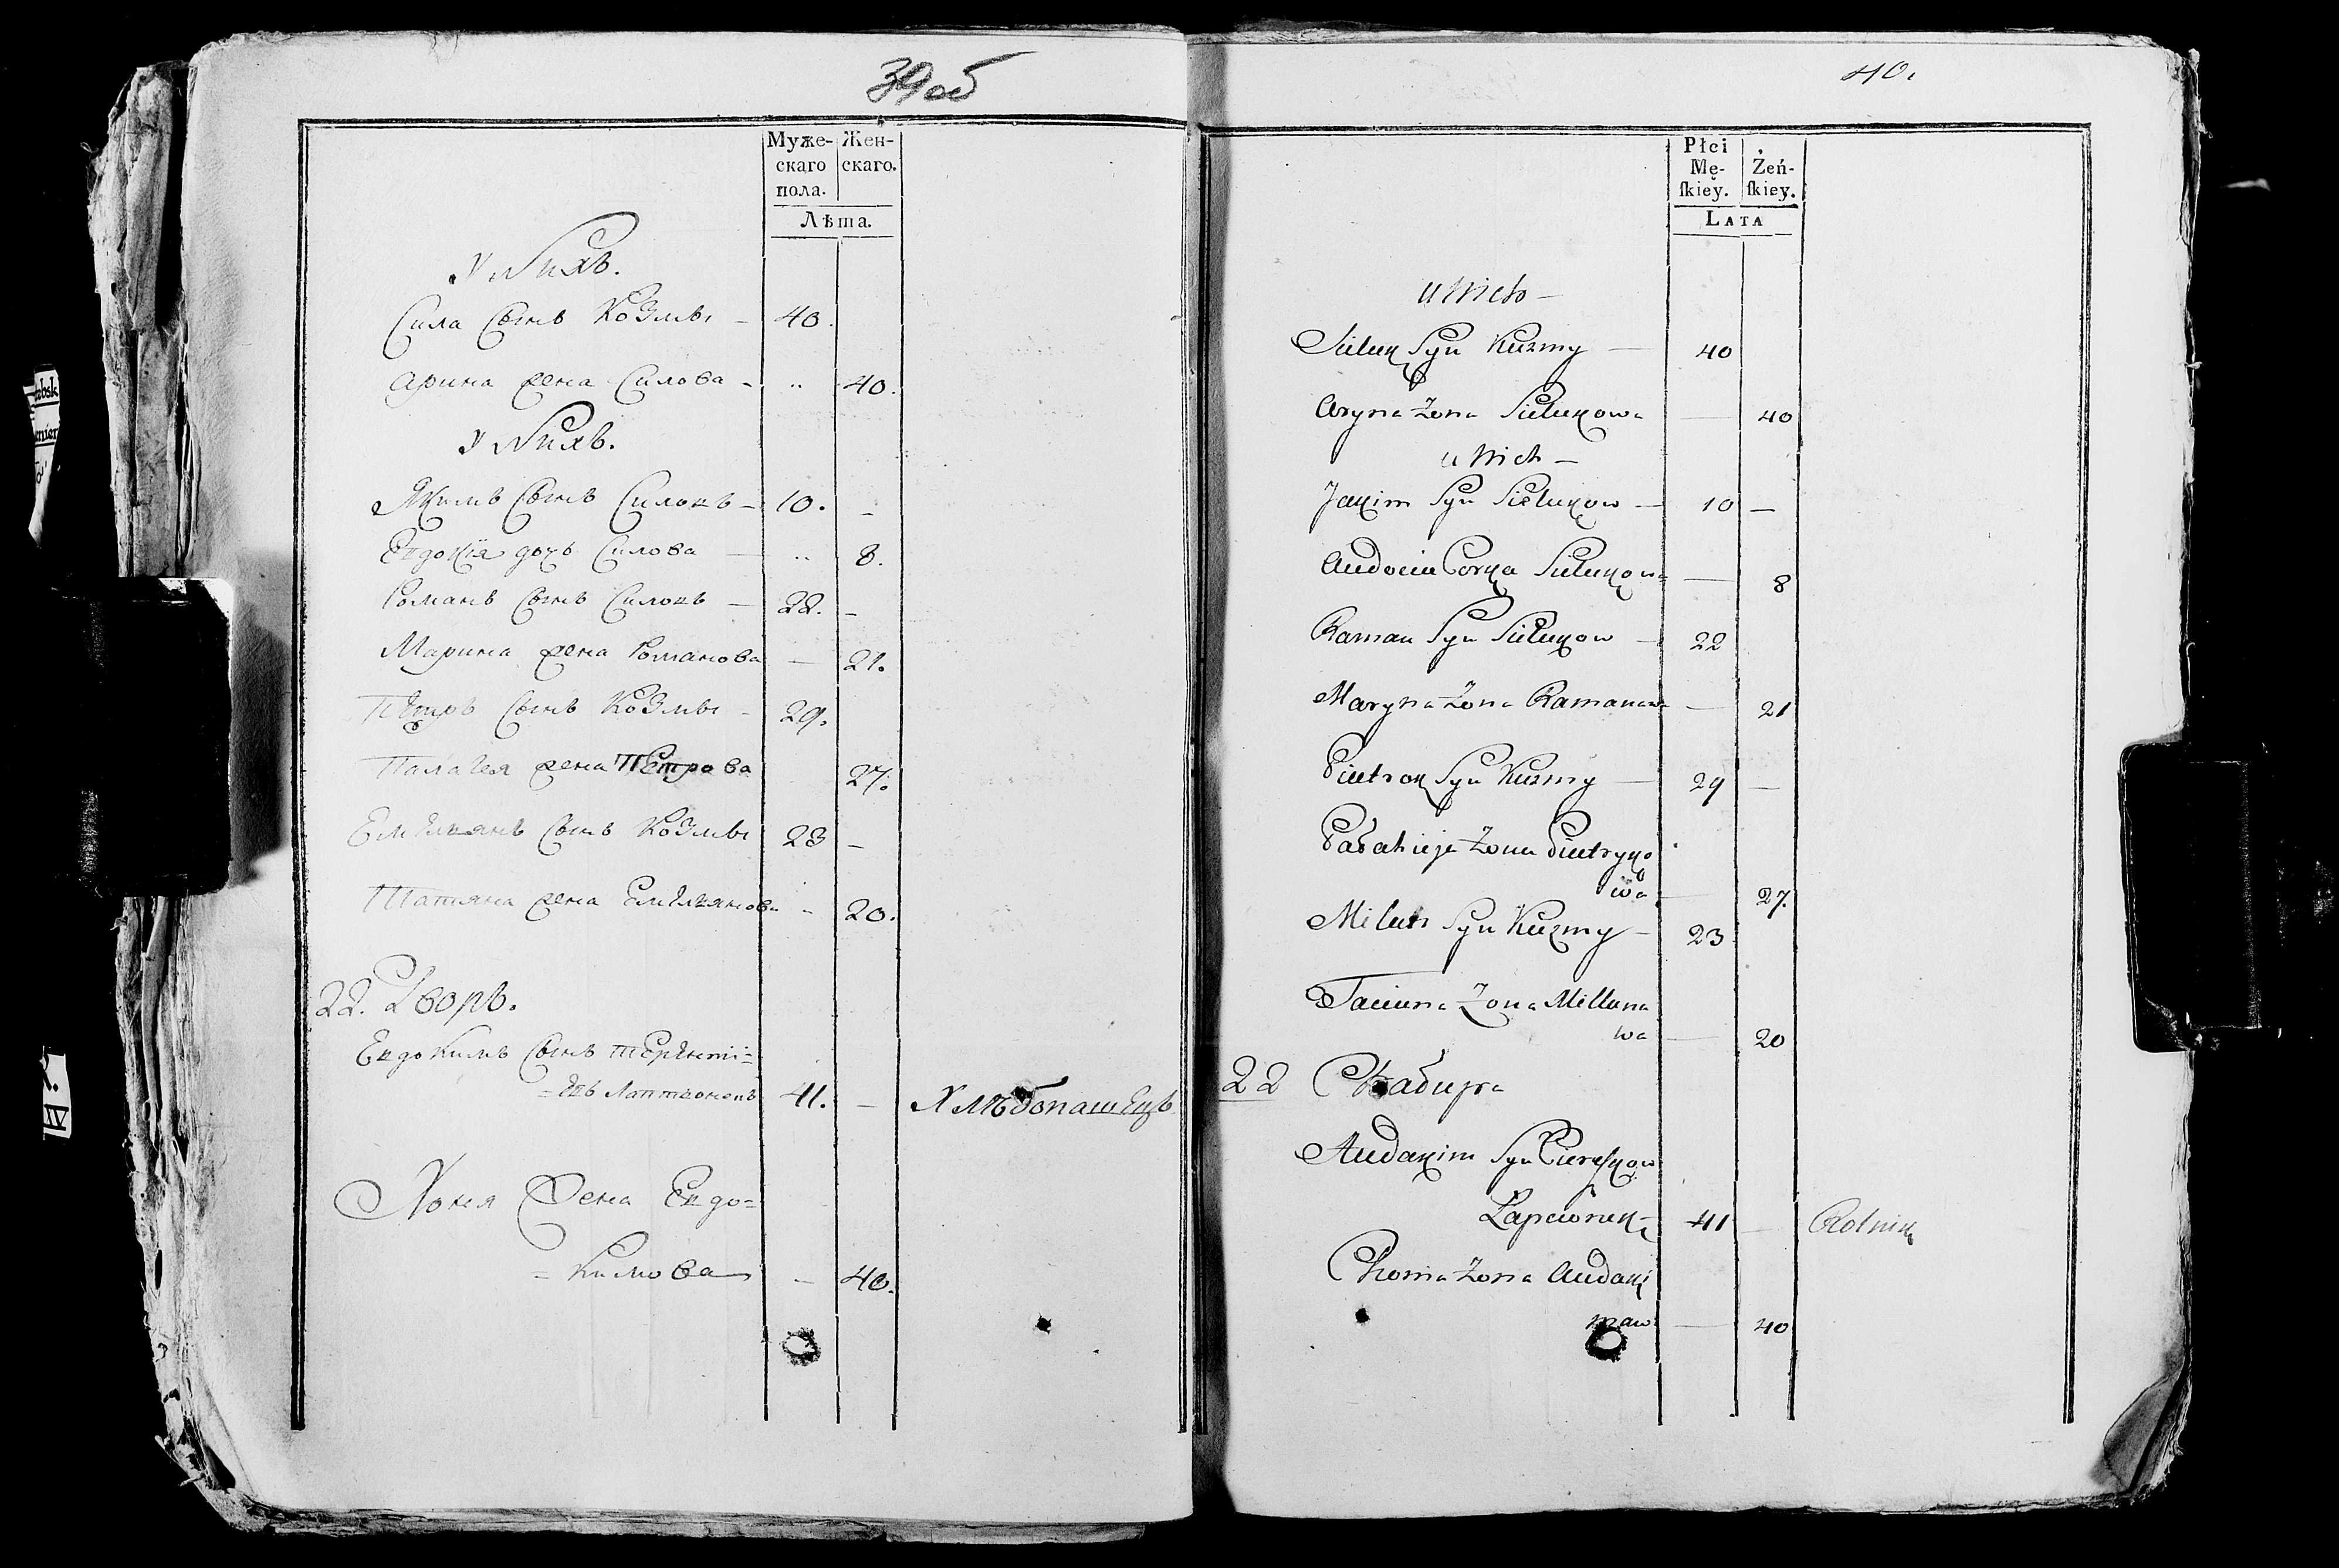 39об
Муже- Жен-
скаго скаго.
пола.
Лѣта.
У Нихъ.
Сила Сынъ Козмы – 40.
Арина жена Силова – .. 40.
У Нихъ.
Якимъ Сынъ Силовъ – 10. –
Евдокія дочь Силова – .. 8.
Романъ Сынъ Силовъ – 22. –
Марина жена Романова – 21.
Пётръ Сынъ Козмы – 29.
Палагея жена Петрова 27.
Емельянъ Сынъ Козмы 23 –
Татяна жена Емельянова – 20.
22. Дворъ.
Евдокимъ Сынъ Теренті=
=евъ Лаптіонокъ 41. – Хлѣбопашецъ
Хоня Жена Евдо=
= кимова – 40.
40.
Płci Żeń-
Mę- ſkiey.
ſkiey.
LATA
u Nich –
Siluk Syn Kuzmy – 40
Aryna Żona Silukowa – 40
u Nich –
Jakim Syn Silukow – 10 –
Audocia Corka Silukowa – 8
Raman Syn Silukow – 22
Maryna Żona Ramanowa – 21
Pietrok Syn Kuzmy – 29 –
Żona Pietryko
wa – 27.
Milan Syn Kuzmy – 23
Taciana Żona Millana
wa – 20
22
Audakim Syn
Łapcionek – 41 – Rolnik
Chonia Żona Audaki
maw – 40